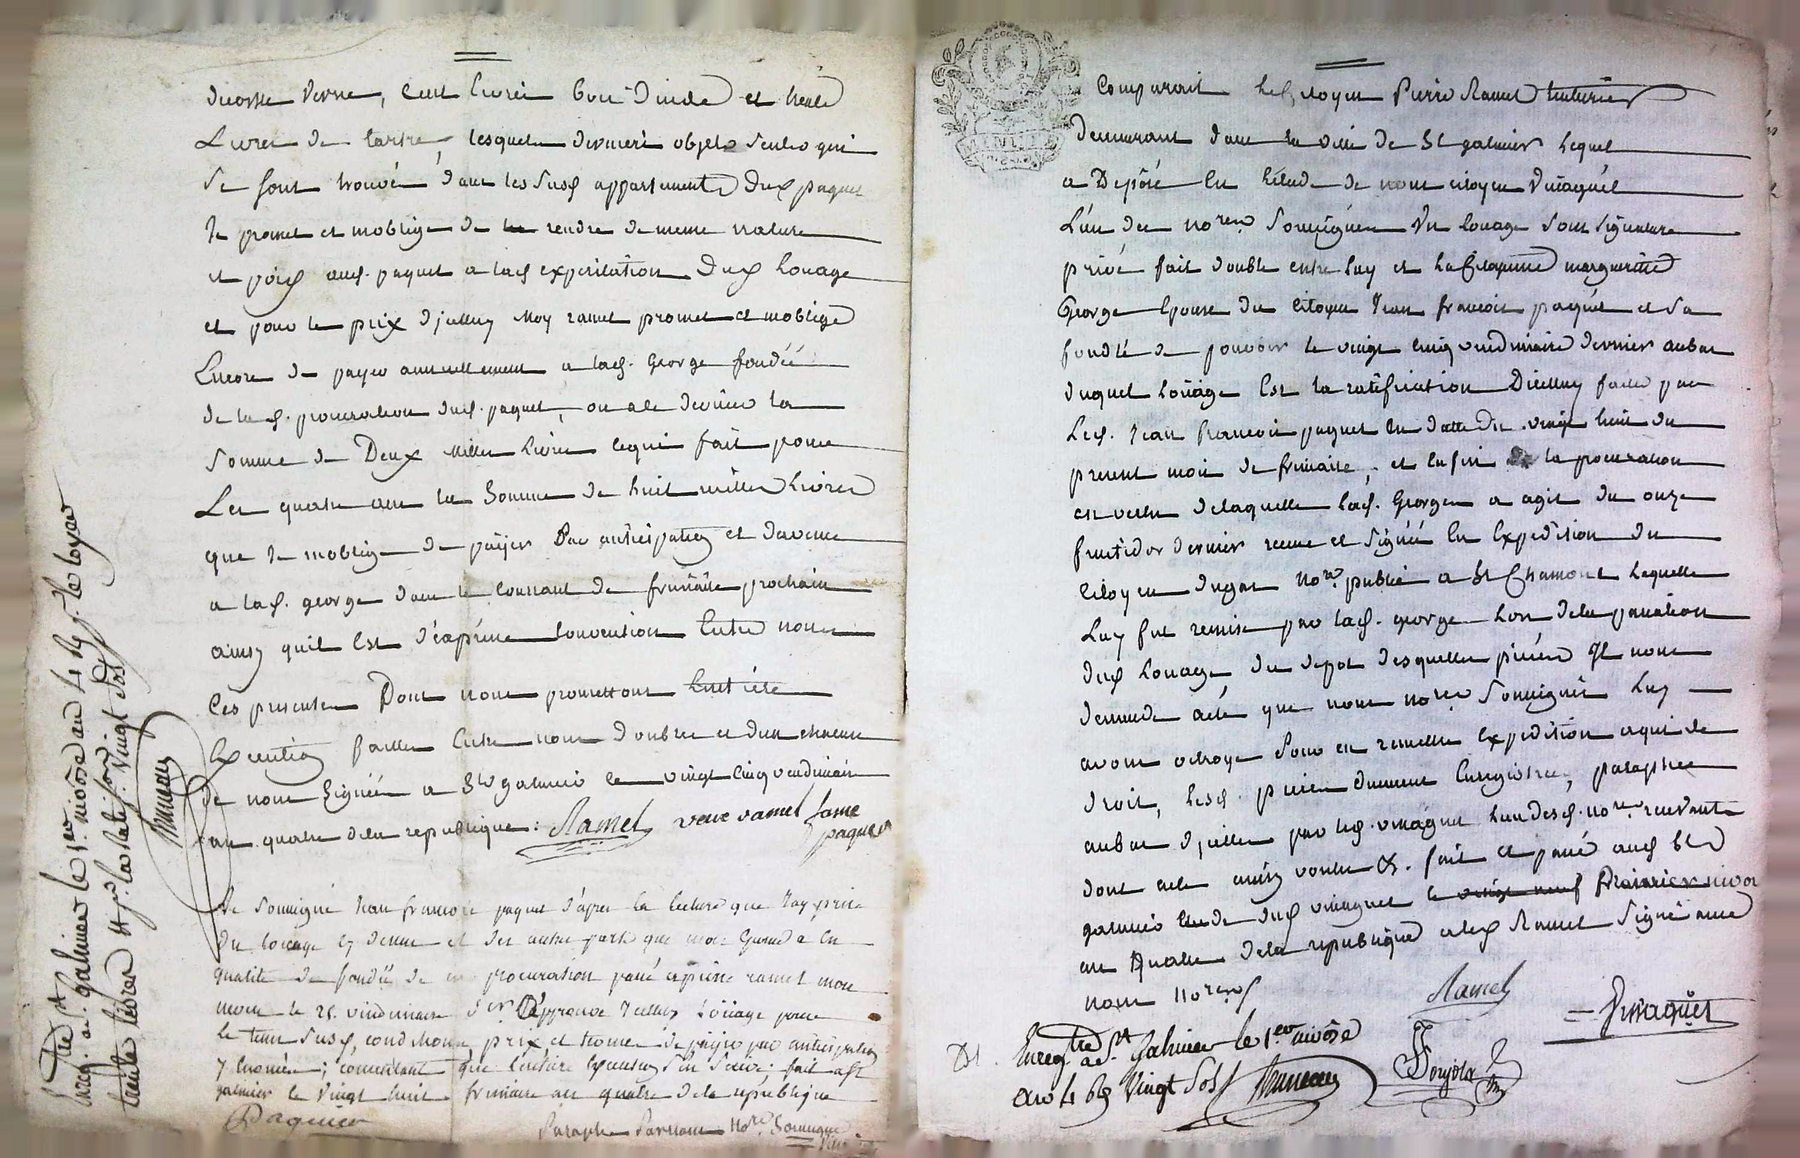 decorse verne, cent livres bois d'inde et trente
Livres de tartre, lesquels derniers objets seulls qui
se sont trouvé dans les susd appartements dud paquet
Je promet et m'oblige de les rendre de meme nature
et poid aud. paquet a lad expiration dud Louage
et pour le prix d'jcelluy Moy ramel promet et moblige
Encore de payer annuellement a lad. George fondée
de lad. procuration dud. paquet, ou a ce dernier la
Somme de Deux Milles Livres ce qui fait pour
Les quatre ans la Somme de huit milles Livres
que je moblige de payer Par anticipation et davance
a lad. george dans le courrant de frimaire prochain
ainsy quil Est d'exprime convention Entre nous
Ces presentes Dont nous promettons Entiere
Execution faittes Entre nous doubles et d'un chacun
de nous Signées a St galmier le vingt cinq vendimiaire
an quatre de la republique : Ramel veuve ramel fame
paquet
Je Soussigné Jean francois paquet d'apres la lecture que J'ay prise
du louage cy dessus et des autre part que ma George a en
qualité de fondée de ma procuration passé a pierre ramel mon
le 25. vendimiaire der Approuve Jcelluy Louage pour
le tems susd, conditions prix et termes de payer par anticipation
y Enoncés; consentant que l'entiere Execution s'en Suive: fait a St
galmier le vingt huit frimaire an quatre de la republique
Paquier
Paraphe Parnous nore Soussigné
Enregtré a St. galmier le 1er. nivôse an 4 pr. le loyer
trente livres et pr. la ratifion. Vingt sols
Bruneau
Comparait le Citoyen Pierre Ramel teinturier
demeurant dans la ville de St galmier Lequel
a Déposé En l'étude de nous citoyen Vinaquet
L'un des nores Soussignés Un louage Sous Signature
privé fait double entre luy et la Citoyenne margueritte
George Epouse du Citoyen Jean francois paquet et Sa
fondée de pouvoir le vingt cinq vendimiaire dernier aubas
duquel Louage Est la ratification D'icelluy faite par
Led. Jean francois paquet en datte du vingt huit du
present mois de frimaire, et Enfin la procuration
en vertu de laquelle Lad. George a agit du onze
fructidor dernier recue et signée En Expedition du
Citoyen dugas nore. public a St Chamont Laquelle
Luy fut remise par lad. george Lors de la passation
dud Louage du depot desquelles pieces Il nous
demande acte que nous nores Soussignés Luy
avons octroyé Pour en remettre Expedition a qui de
droit, Lesd. pieces dument Enregistrées, paraphées
aubas d'jcelles par led. vinaquet L'un desd. nores recevants
dont acte ainsy voulu &. fait et passé aud St
galmier Etude dud vinaquet le vingt neuf Premier nivose
an Quatre de la republique et led Ramel Signé avec
nous nores
Ramel
Vinaquet
Enregtré a St. Galmier le 1er nivôse
an 4 Vingt sols Bruneau